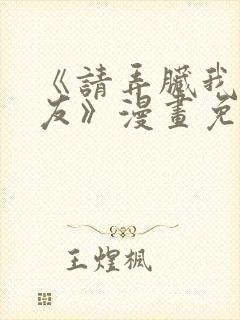 《請弄臟我
友》漫畫免
王煌楓